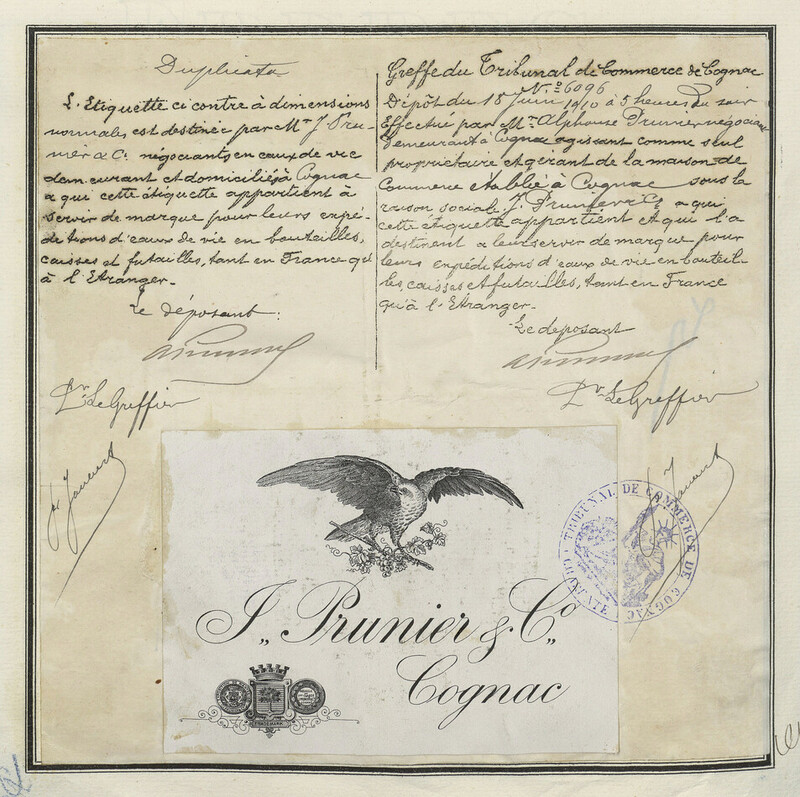 Duplicata
L'Etiquette ci contre à dimensions
normales, est destinée par Mr J. Pru-
nier & Co. négociants en eaux de vie
demeurant et domiciliés à Cognac
a qui cette étiquette appartient à
servir de marque pour leurs expé-
ditions d'eaux de vie en bouteilles,
caisses et futailles, tant en France qu'
à l'Etranger.
Le déposant:
Pr Le Greffier
Greffe du Tribunal de Commerce de Cognac
No 6096
Dépôt du 18 Juin 1910 à 5 heures du soir
Effectué par Mr Alphonse Prunier négociant
demeurant à Cognac agissant comme seul
propriétaire et gérant de la maison de
Commerce établie à Cognac sous la
raison sociale J. Prunier & Co a qui
cette étiquette appartient et qui l'a
destinent a leur servir de marque pour
leurs expéditions d'eaux de vie en bouteil-
les, caisses et futailles, tant en France
qu'à l'Etranger.
Le deposant
Pr Le Greffier
TRIBUNAL DE COMMERCE DE COGNAC
CHARENTE
J. Prunier & Co.
Cognac